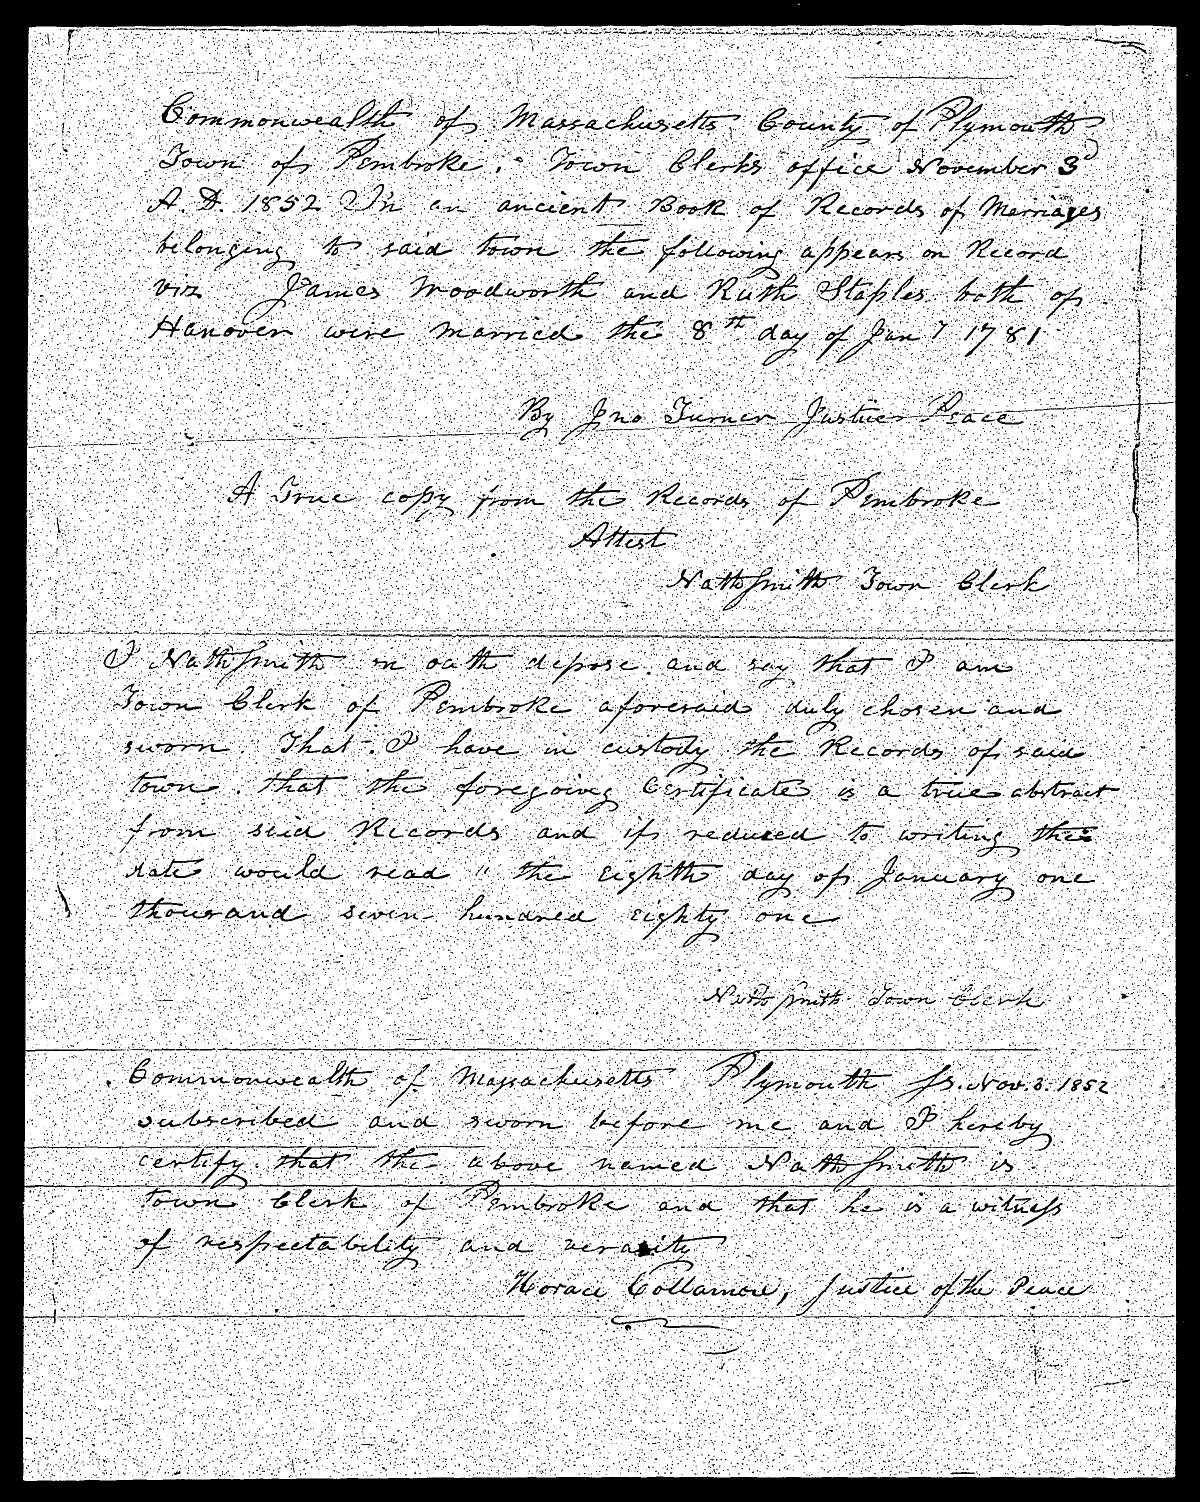 Commonwealth of Massachusetts County of Plymouth
Town of Pembroke. Town Clerks office November 3d
A.D. 1852 In an ancient Book of Records of Marriages
belonging to said town the following appears on Record
viz James Woodworth and Ruth Staples both of
Hanover were married the 8th day of Jany 1781
By Jno Turner Justice Peace
A True copy from the Records of Pembroke
Attest
Nath Smith Town Clerk
I Nath Smith on oath depose and say that I am
Town Clerk of Pembroke aforesaid duly chosen and
sworn. That I have in custody the Records of said
town. that the foregoing Certificate is a true abstract
from said Records and if reduced to writing the
date would read " the eighth day of January one
thousand seven hundred eighty one
Nath Smith Town Clerk
Commonwealth of Massachusetts Plymouth Ss. Nov. 3. 1852
subscribed and sworn before me and I hereby
certify that the above named Nath Smith is
town Clerk of Pembroke and that he is a witness
of respectability and veracity
Horace Collamore, Justice of the Peace